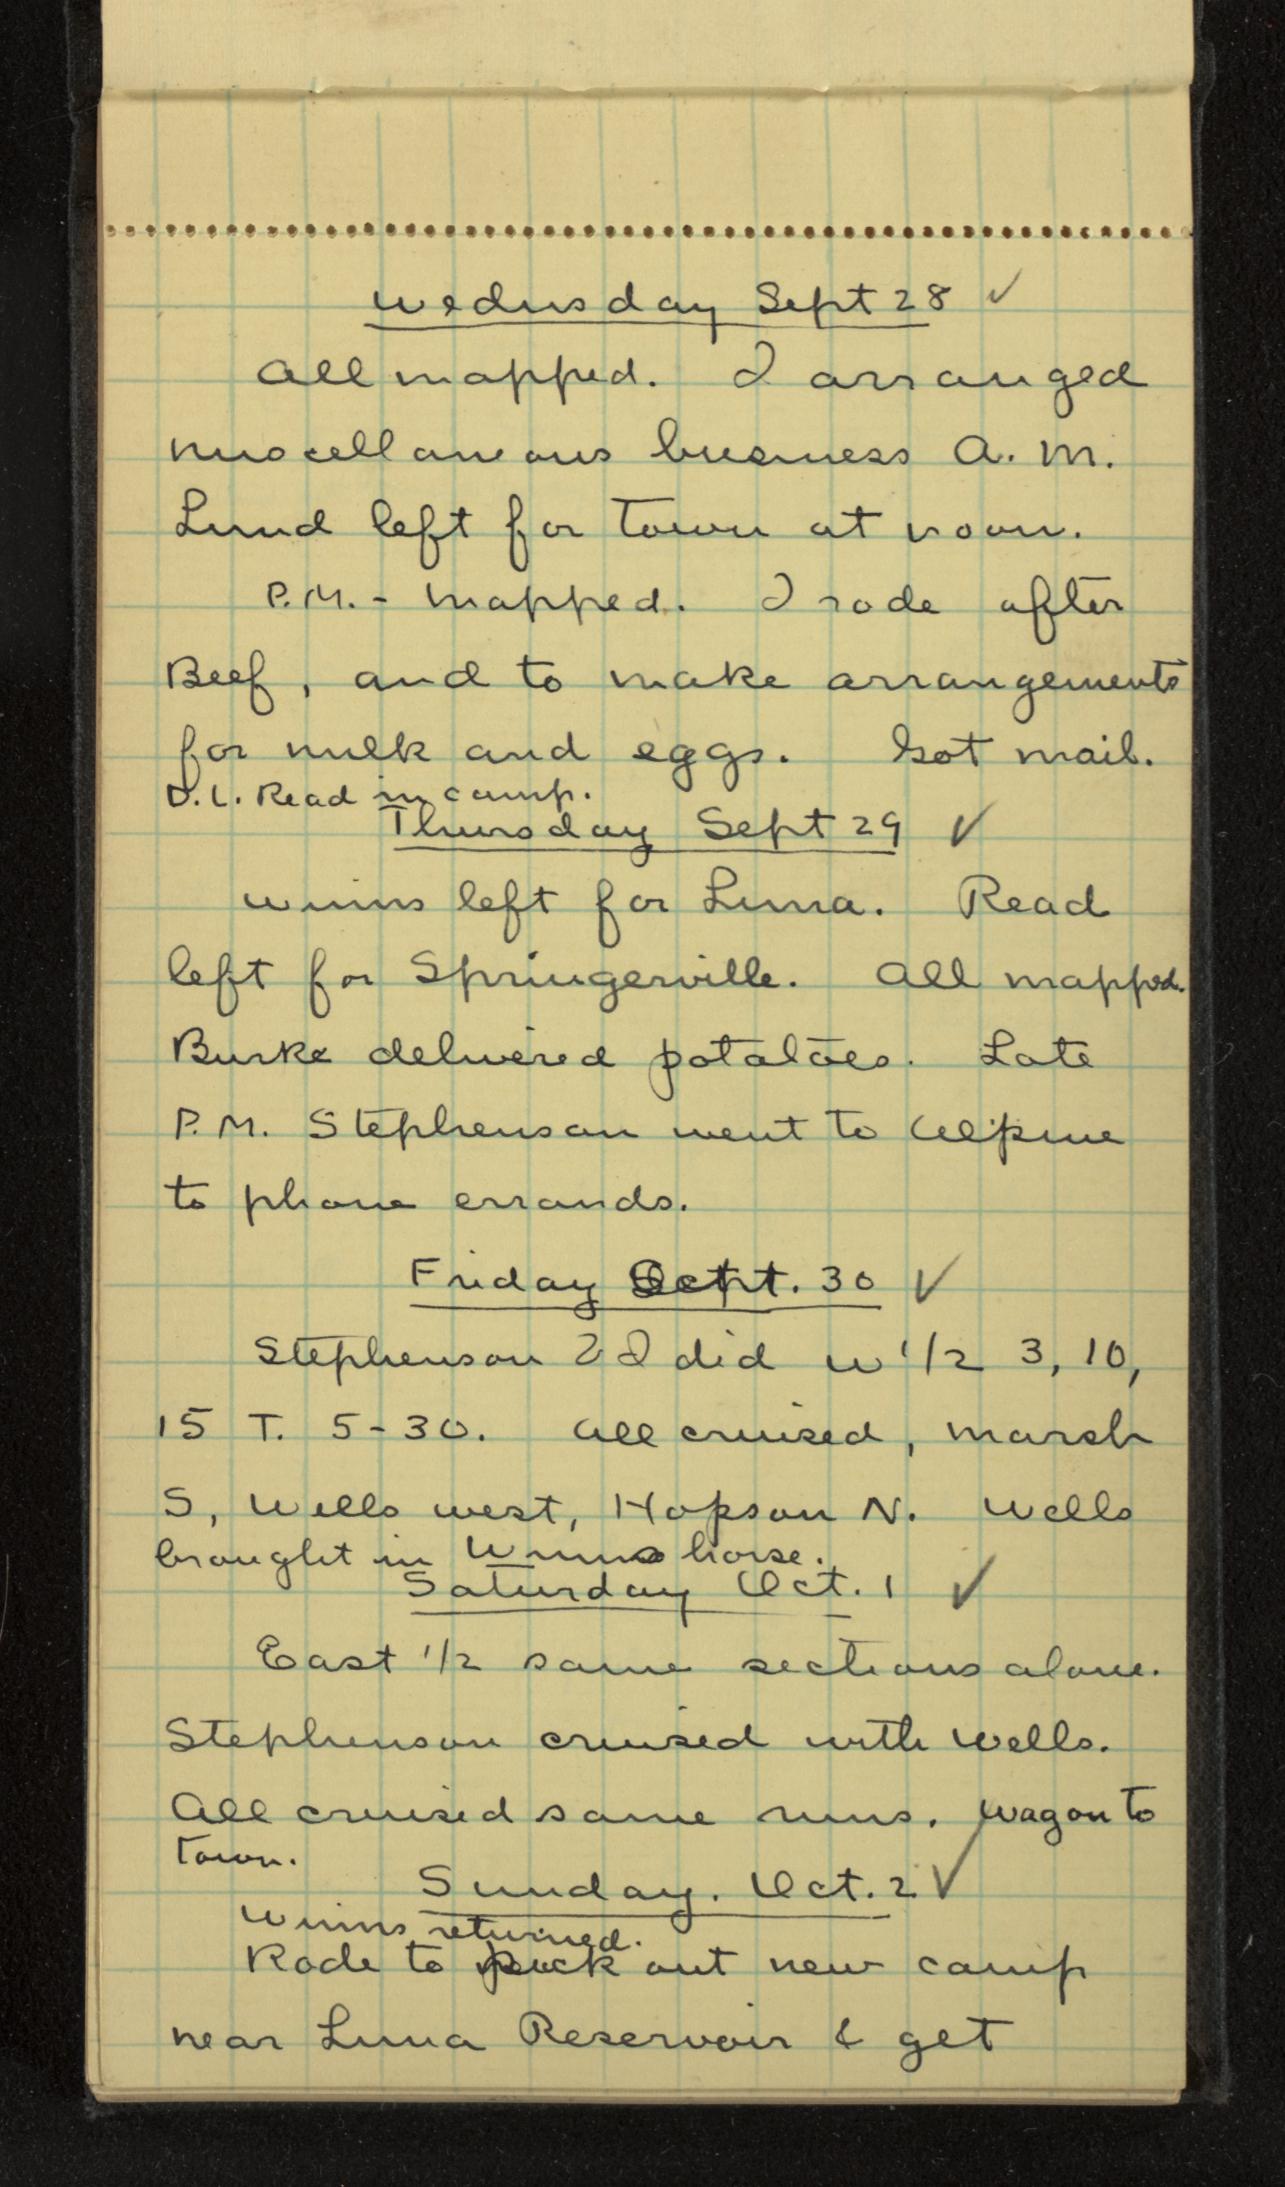 Wednesday Sept 28 ✓
All mapped. I arranged
miscellaneous business A.M.
Lund left for town at noon.
P.M. - Mapped. I rode after
Beef, and to make arrangements
for milk and eggs. Got mail.
D.L. Read in camp.
Thursday Sept 29 ✓
Winns left for Luna. Read
left for Springerville. All mapped.
Burke delivered potatoes. Late
P.M. Stephenson went to Alpine
to phone errands.
Friday Sept. 30 ✓
Stephenson & I did W 1/2 3, 10,
15 T. 5-30. All cruised, Marsh
S, Wells west, Hopson N. Wells
brought in Winns horse.
Saturday Oct. 1 ✓
East 1/2 same sections alone.
Stephenson cruised with Wells.
All cruised same runs. Wagon to
town.
Sunday. Oct. 2 ✓
Winns returned.
Rode to pick out new camp
near Luna Reservoir & get